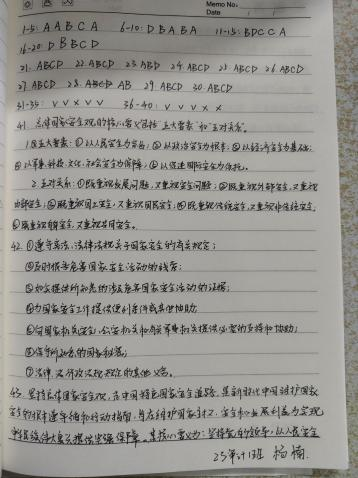 Memo No.
Date
1-5: A A B C A 6-10: D B A B A 11-15: B D C C A
16-20: D B B C D
21. ABCD 22. ABCD 23. ABD 24. ABCD 25. ABCD 26. ABCD
27. ABCD 28. AB 29. ABCD 30. ABCD
31-35: V V X V V 36-40: V V V X X
41. 总体国家安全观的核心要义包括"五大要素"和"五对关系"。
1.五大要素：①以人民安全为宗旨；②以政治安全为根本；③以经济安全为基础；
④以军事、科技、文化、社会安全为保障；⑤以促进国际安全为依托。
2.五对关系：①既重视发展问题，又重视安全问题；②既重视外部安全，又重视
内部安全；③既重视国土安全，又重视国民安全；④既重视传统安全，又重视非传统安全；
⑤既重视自身安全，又重视共同安全。
42. ①遵守宪法、法律法规关于国家安全的有关规定；
②及时报告危害国家安全活动的线索；
③如实提供所知悉的涉及危害国家安全活动的证据；
④为国家安全工作提供便利条件或其他协助；
⑤向国家机关安全、公安机关和有关军事机关提供必要的支持和协助；
⑥保守所知悉的国家秘密；
⑦法律、法行政法规规定的其他义务。
43. 坚持总体国家安全观，走中国特色国家安全道路，是新时代中国维护国家
安全的根本遵循和行动指南，旨在维护国家主权、安全和发展利益为实现
中华民族伟大复兴提供坚强保障。其核心要义为：坚持党的领导，以人民安全
25审计1班 杨楠